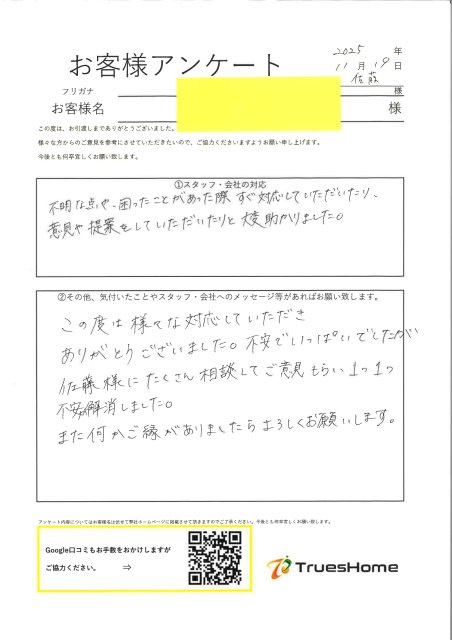 2025 年
11月19日
お客様アンケート
佐藤
フリガナ 様
お客様名 様
この度は、お引渡しまでありがとうございました。
様々な方からのご意見を参考にさせていただきたいので、ご協力くださいますようお願い申し上げます。
今後とも何卒宜しくお願い致します。
①スタッフ・会社の対応
不明な点や、困ったことがあった際すぐ対応していただいたり、
意見や提案をしていただいたりと大変助かりました。
②その他、気付いたことやスタッフ・会社へのメッセージ等があればお願い致します。
この度は様々な対応していただき
ありがとうございました。不安でいっぱいでしたが
佐藤様にたくさん相談してご意見もらい1つ1つ
不安解消しました。
また何かご縁がありましたらよろしくお願いします。
アンケート内容についてはお客様名は伏せて弊社ホームページに掲載させて頂きますのでご了承ください。今後とも何卒宜しくお願い致します。
Google口コミもお手数をおかけしますが
ご協力ください。 ⇒
TruesHome